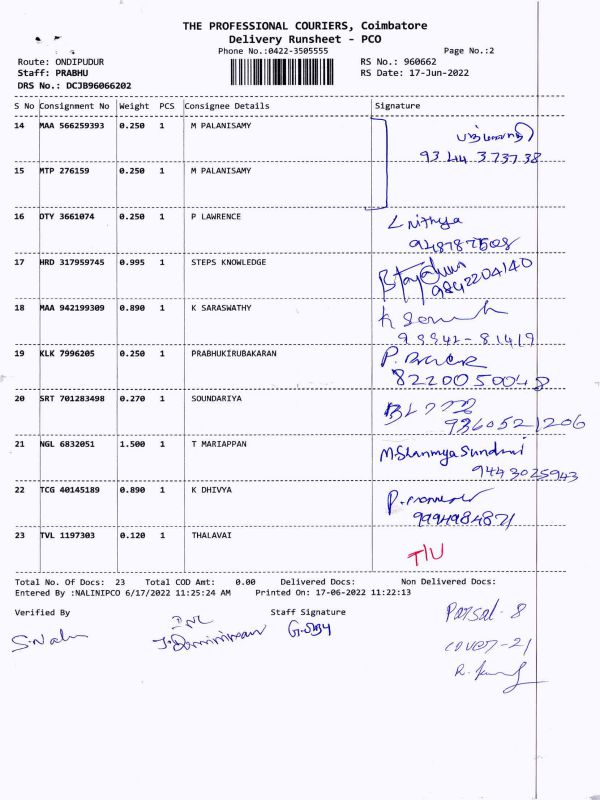 THE PROFESSIONAL COURIERS, Coimbatore
Delivery Runsheet - PCO
Phone No.:0422-3505555
Page No.:2
Route: ONDIPUDUR
RS No.: 960662
Staff: PRABHU
RS Date: 17-Jun-2022
DRS No.: DCJB96066202
S No Consignment No Weight PCS Consignee Details Signature
14 MAA 566259393 0.250 1 M PALANISAMY
93 44 373738
15 MTP 276159 0.250 1 M PALANISAMY
16 DTY 3661074 0.250 1 P LAWRENCE L nithya
948787508
17 HRD 317959745 0.995 1 STEPS KNOWLEDGE
9842204140
18 MAA 942199309 0.890 1 K SARASWATHY
98941-81419
19 KLK 7996205 0.250 1 PRABHUKIRUBAKARAN
8220050048
20 SRT 701283498 0.270 1 SOUNDARIYA
9360521206
21 NGL 6832051 1.500 1 T MARIAPPAN M.Shanmya Sundari
9443025943
22 TCG 40145189 0.890 1 K DHIVYA
9994984871
23 TVL 1197303 0.120 1 THALAVAI T/U
Total No. Of Docs: 23 Total COD Amt: 0.00 Delivered Docs: Non Delivered Docs:
Entered By :NALINIPCO 6/17/2022 11:25:24 AM Printed On: 17-06-2022 11:22:13
Verified By Staff Signature
Parsal - 8
cover - 21